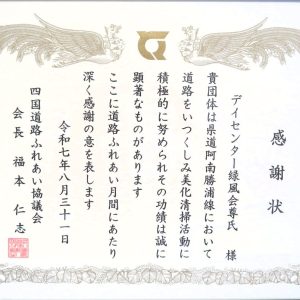 感謝状
デイセンター緑風会尊氏 様
貴団体は県道阿南勝浦線において
道路をいつくしみ美化清掃活動に
積極的に努められその功績は誠に
顕著なものがあります
ここに道路ふれあい月間にあたり
深く感謝の意を表します
令和七年八月三十一日
四国道路ふれあい協議会
会長 福本仁志